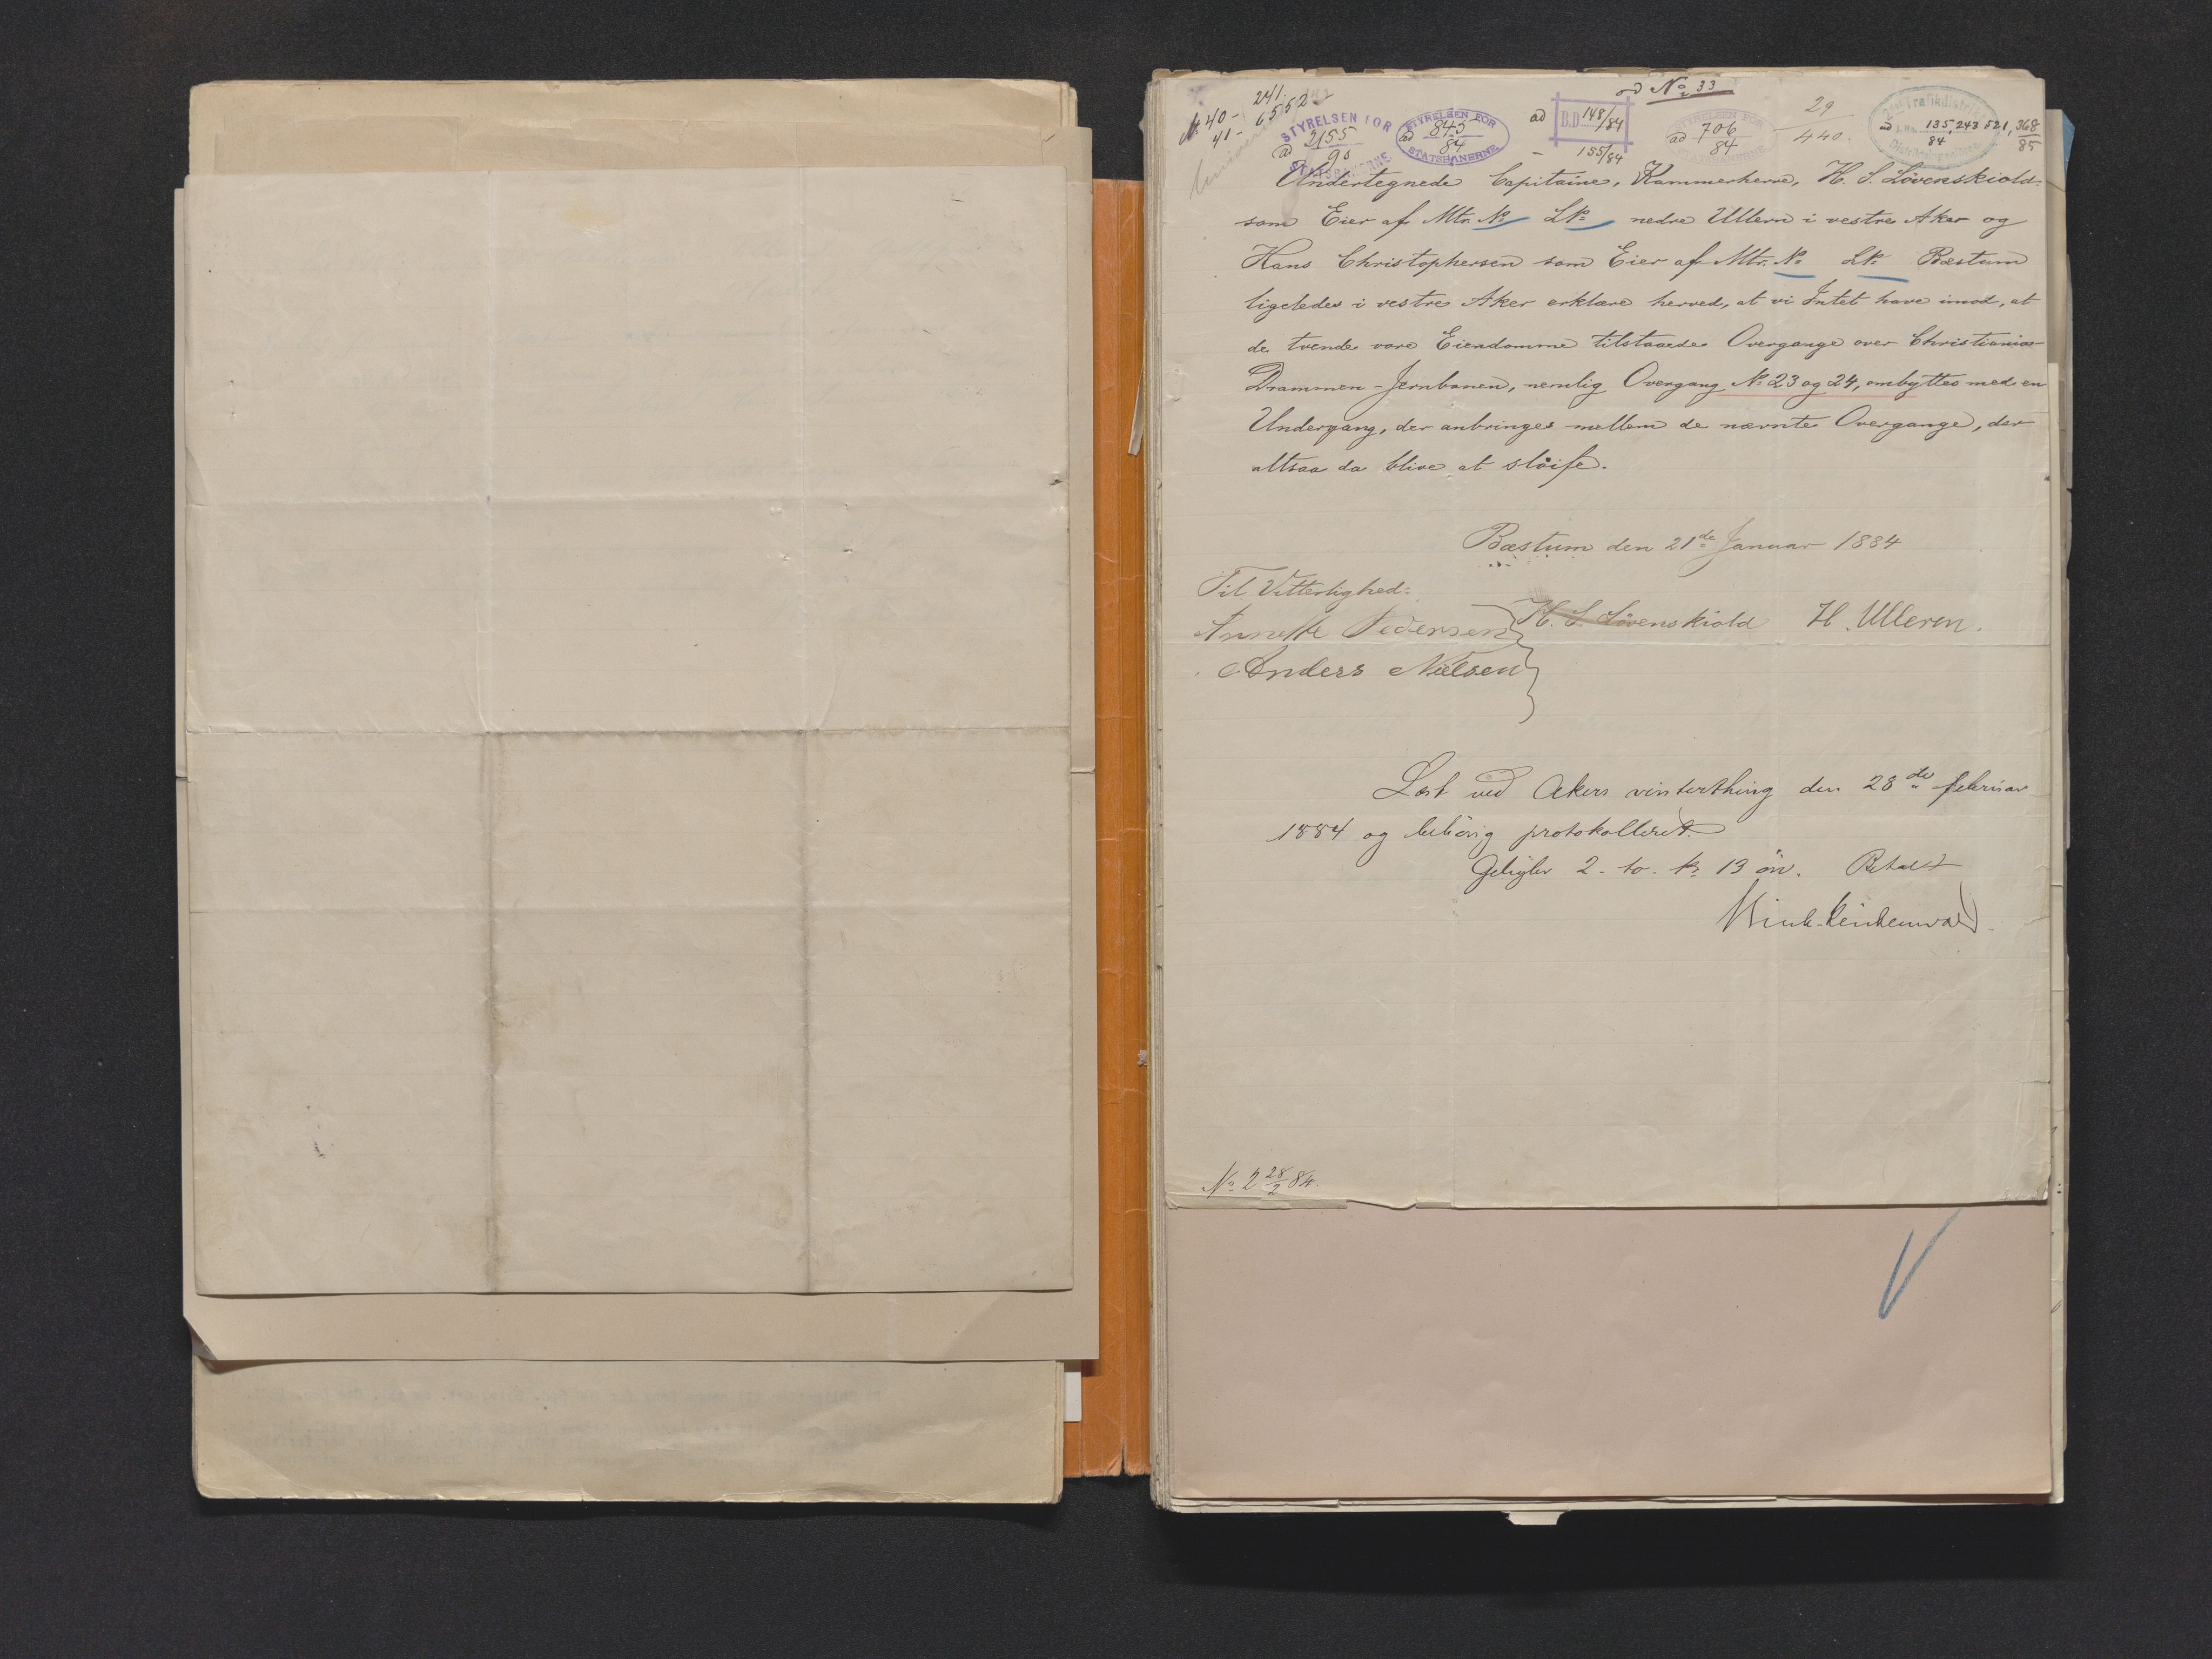 ad No 33
241.
No 40 - 6552
41 -
STYRELSEN FOR
ad 2155
90
STATSBANERNE
STYRELSEN FOR
ad 845
84
STATSBANERNE
ad B.D 148/84
- 155/84
STYRELSEN FOR
ad 706
84
STATSBANERNE
29
440.
Trafikdistrikt
ad J. No. 135, 243 521, 368
84 85
Undertegnede Capitaine, Kammerherre, H. S. Lövenskiold
som Eier af Mtr. No LNo nedre Ullern i vestre Aker og
Hans Christophersen som Eier af Mtr. No LNo Bæstum
ligeledes i vestre Aker erklære herved, at vi Intet have imod, at
de tvende vore Eiendomme tilstaaede Overgange over Christiania-
Drammen-Jernbanen, nemlig Overgang No 23 og 24, ombyttes med en
Undergang, der anbringes mellem de nævnte Overgange, der
altsaa da blive at slöife.
Bæstum den 21de Januar 1884
Til Vitterlighed:
Annette Pedersen
H. S. Lövenskiold H. Ulleren.
Anders Nielsen
Læst ved Akers vinterthing den 28de februar
1884 og behörig protokolleret.
Gebyler 2 - to - kr 13 ör. Betalt
No 2 28/2 84.